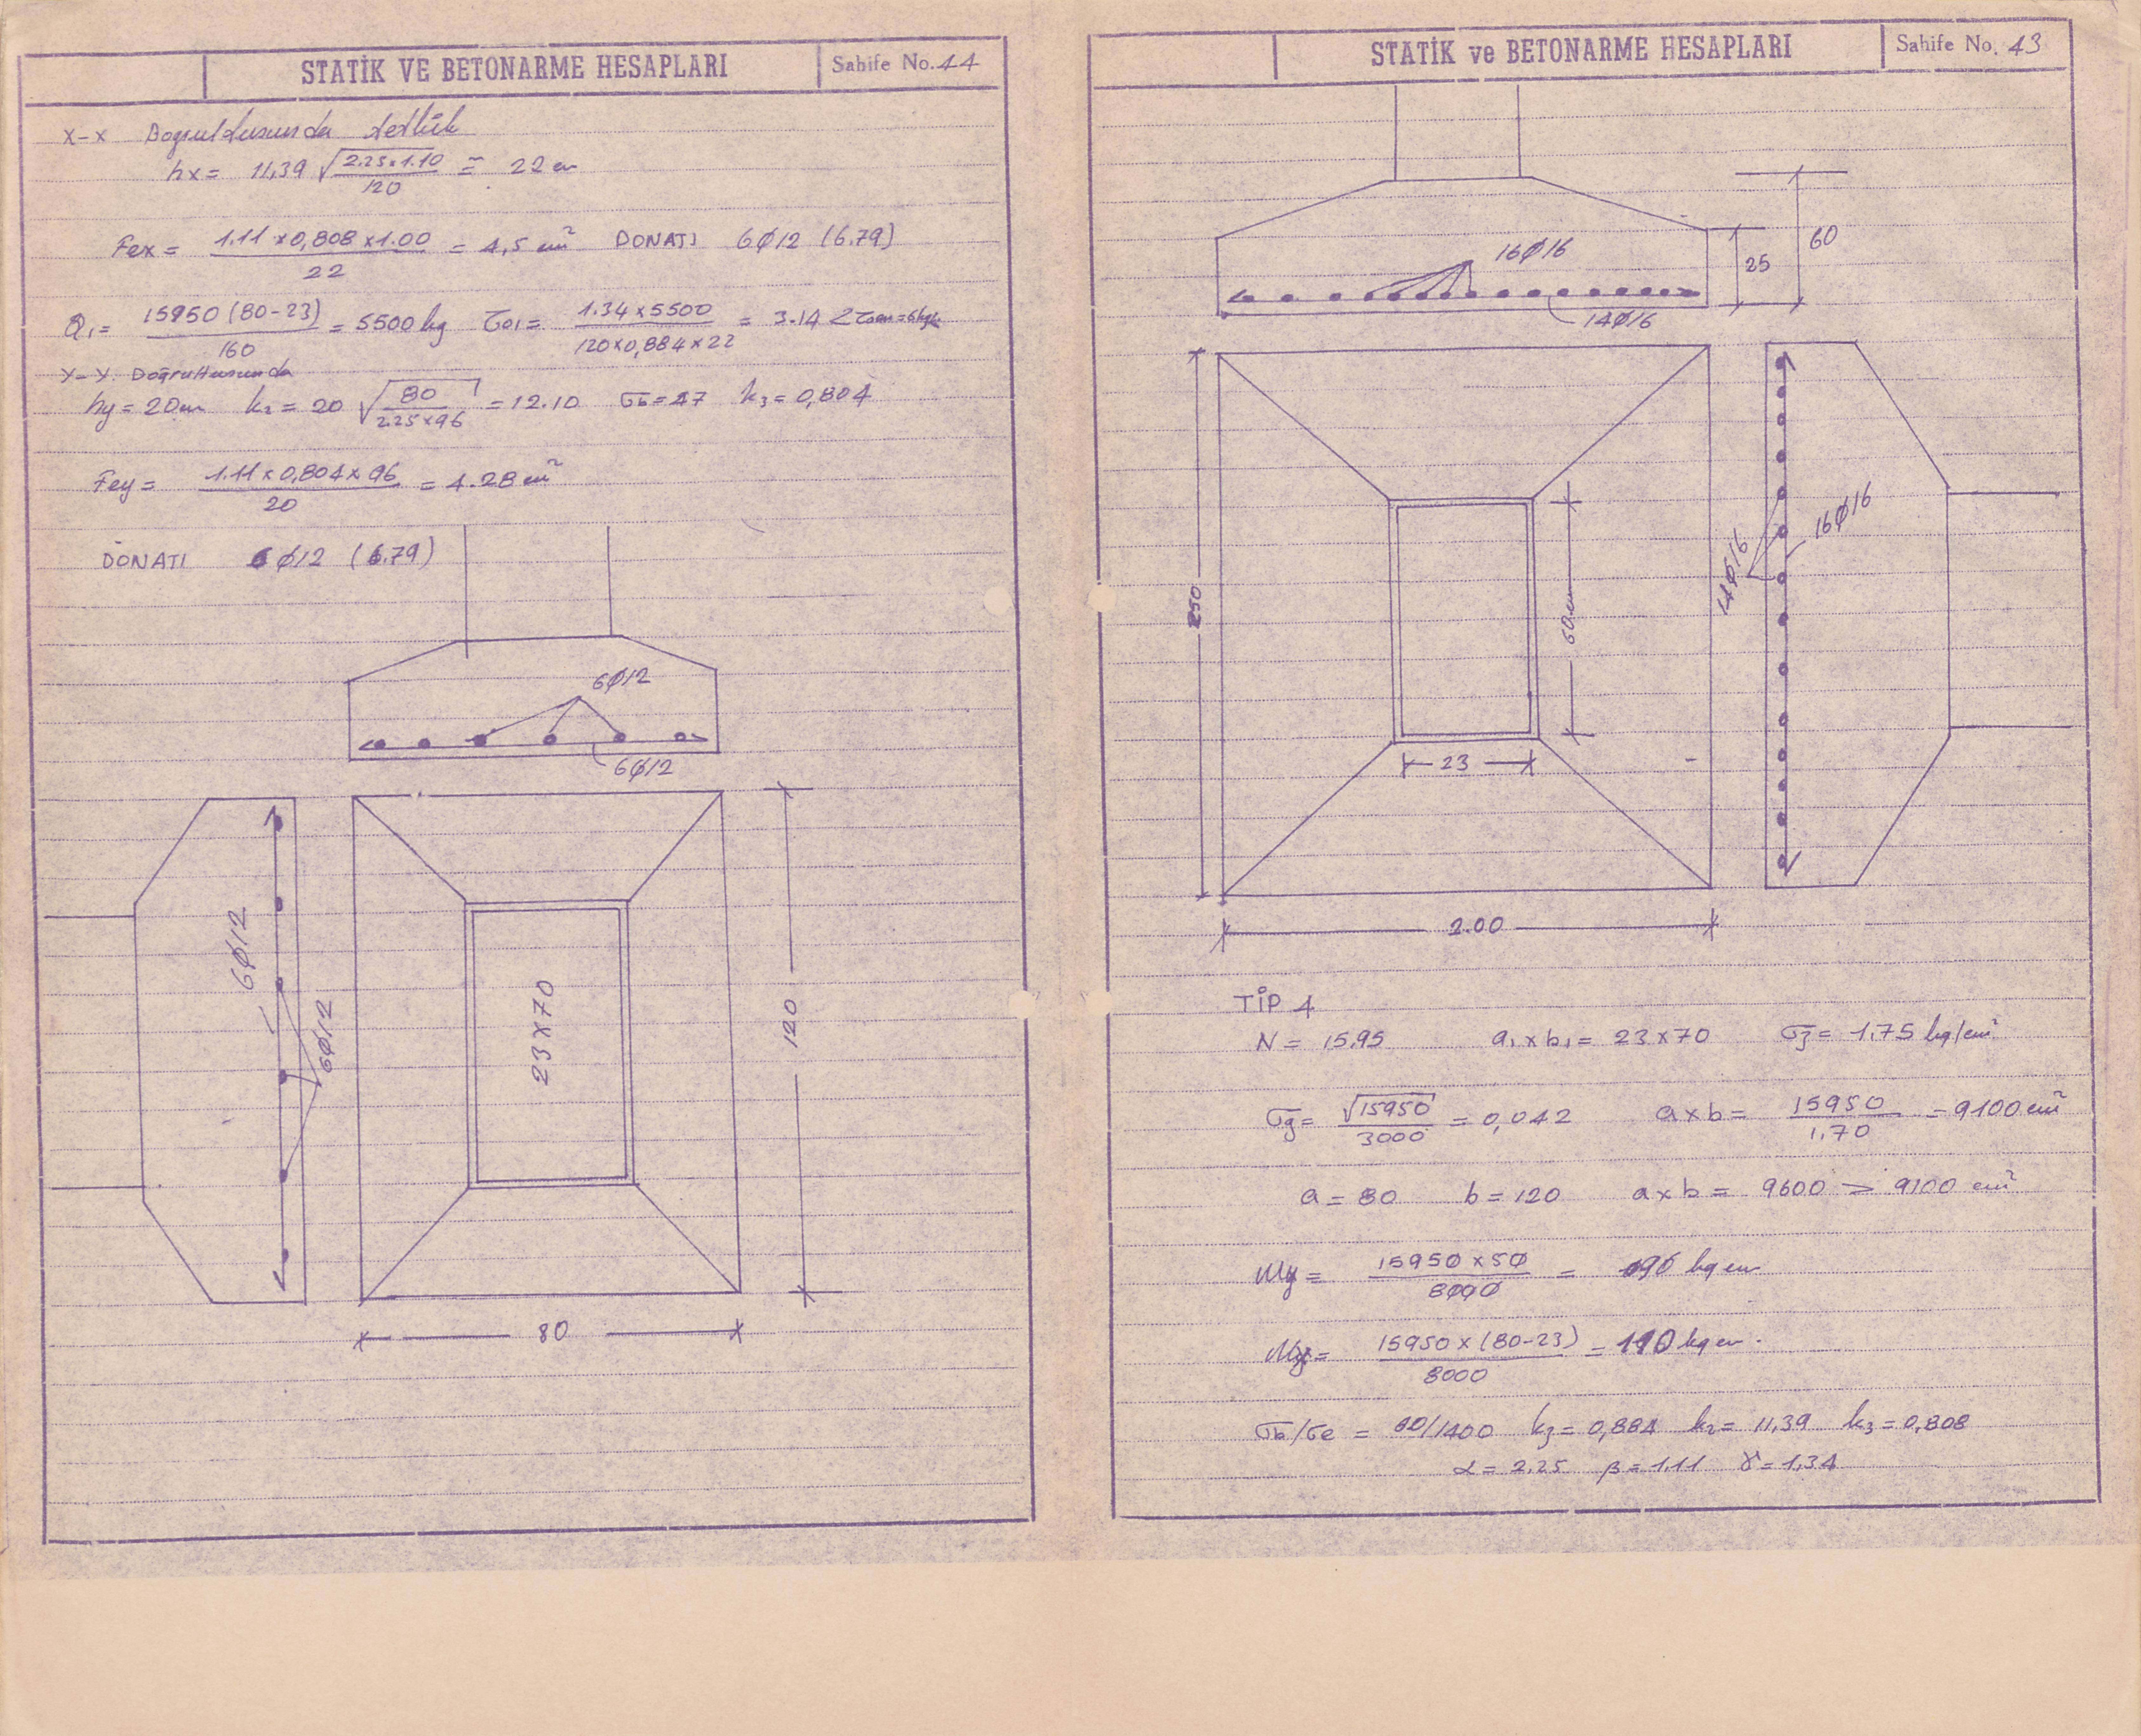 STATİK VE BETONARME HESAPLARI
Sahife No. 44
x-x Doğrultusunda tetkik
hx = 11,39 √2.25x1.10/120 ≅ 22 cm
Fex = 1.11 x 0,808 x 1.00 / 22 = 4,5 cm² DONATI 6Ø12 (6.79)
Q₁ = 15950 (80-23) / 160 = 5500 kg τ01 = 1.34 x 5500 / 120 x 0,884 x 22 = 3.14 <
Y-Y. Doğrultusunda
hy = 20 cm k₂ = 20 √80/2.25x96 = 12.10 σb = 47 k₃ = 0,804
Fey = 1.11 x 0,804 x 96 / 20 = 4.28 cm²
DONATI 6Ø12 (6.79)
6Ø12
6Ø12
6Ø12
6Ø12
23x70
120
80
STATİK ve BETONARME HESAPLARI
Sahife No. 43
16Ø16
14Ø16
25
60
250
60cm
23
14Ø16
16Ø16
2.00
TİP 4
N = 15.95 a₁ x b₁ = 23 x 70 σz = 1,75 kg/cm²
σg = √15950 / 3000 = 0,042 a x b = 15950 / 1,70 = 9100 cm²
a = 80 b = 120 a x b = 9600 > 9100 cm²
My = 15950 x 50 / 8000 = kg cm
15950 x (80-23) / 8000 = 110 kg cm.
σb/σe = /1400 kz = 0,884 k₂ = 11,39 k₃ = 0,808
α = 2.25 β = 1.11 γ = 1,34